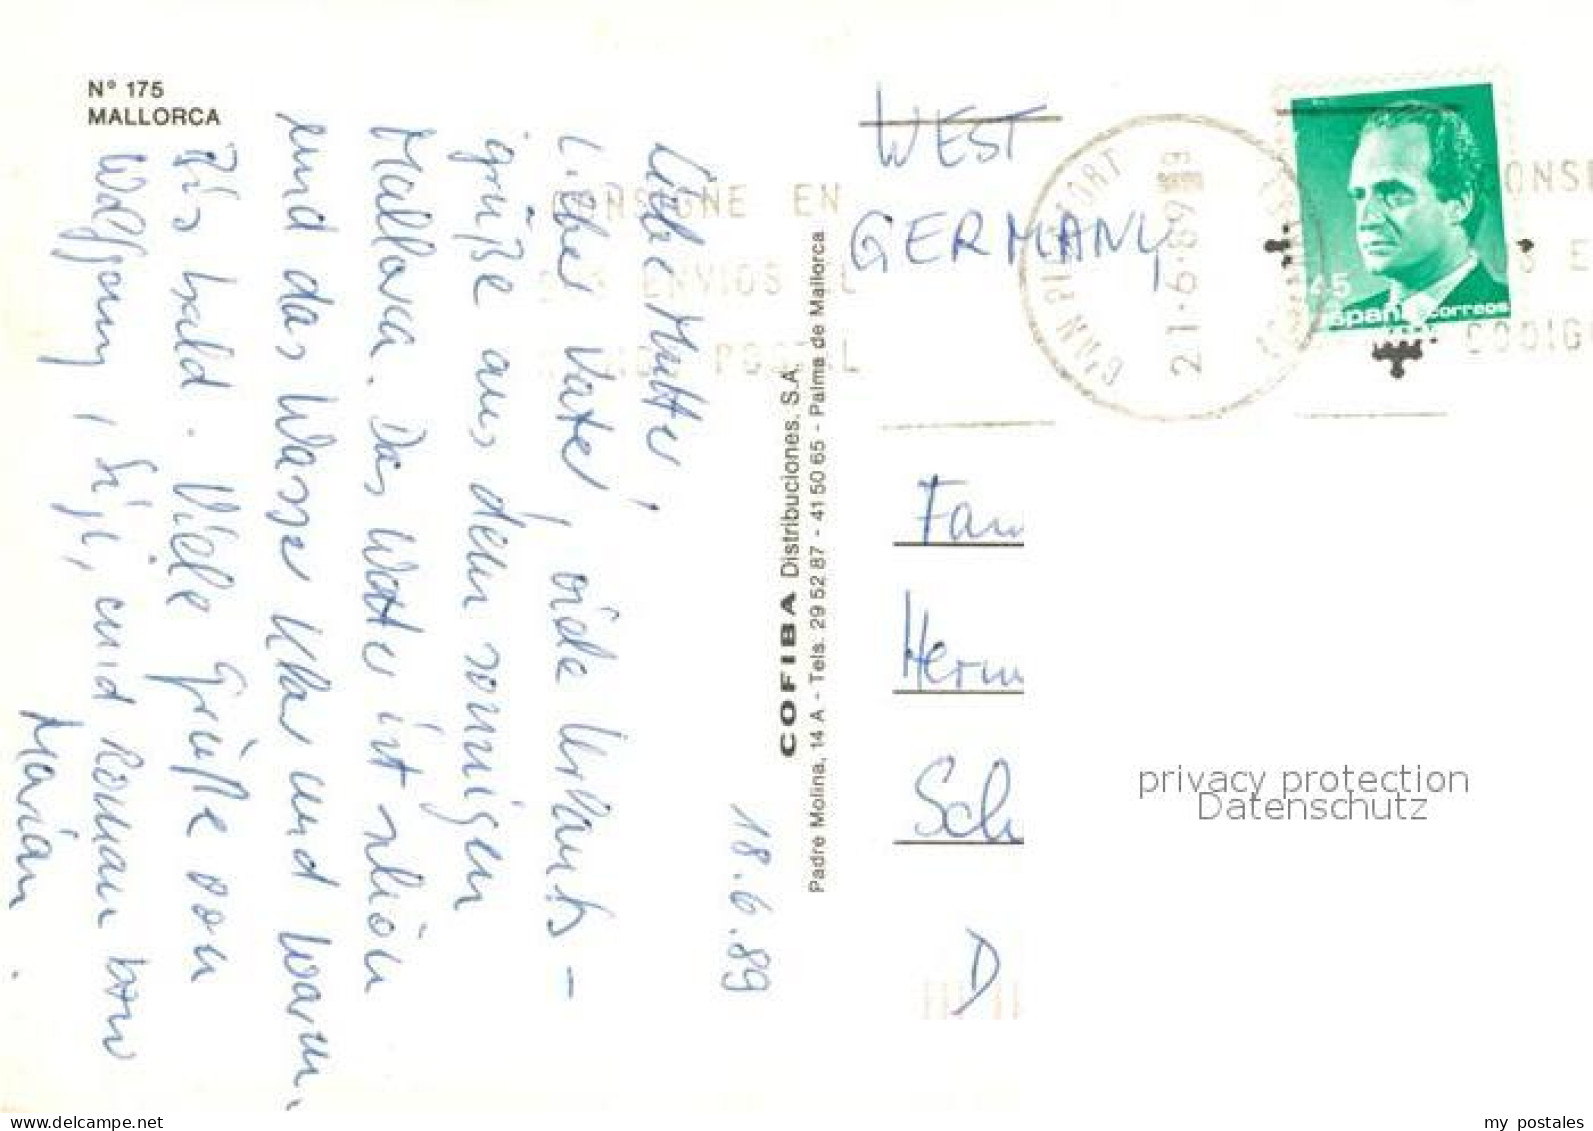 Nº 175
MALLORCA
18.6.89
Liebe Mutter,
Lieber Vater, viele Urlaubs-
grüße aus dem sonnigen
Mallorca. Das Wetter ist schön
und das Wasser klar und warm.
Bis bald. Viele Grüße von
Wolfgang, Sigi, und Roman
Marian.
COFIBA Distribuciones. S.A.
Padre Molina, 14 A - Tels. 29 52 87 - 41 50 65 - Palma de Mallorca
WEST
GERMANY
CONSIGNE EN
ENVIOS EL
POSTAL
21.6.89
45
españa correos
CODIG
Fam
Herm
Sch
D
privacy protection
Datenschutz
www.delcampe.net
my_postales